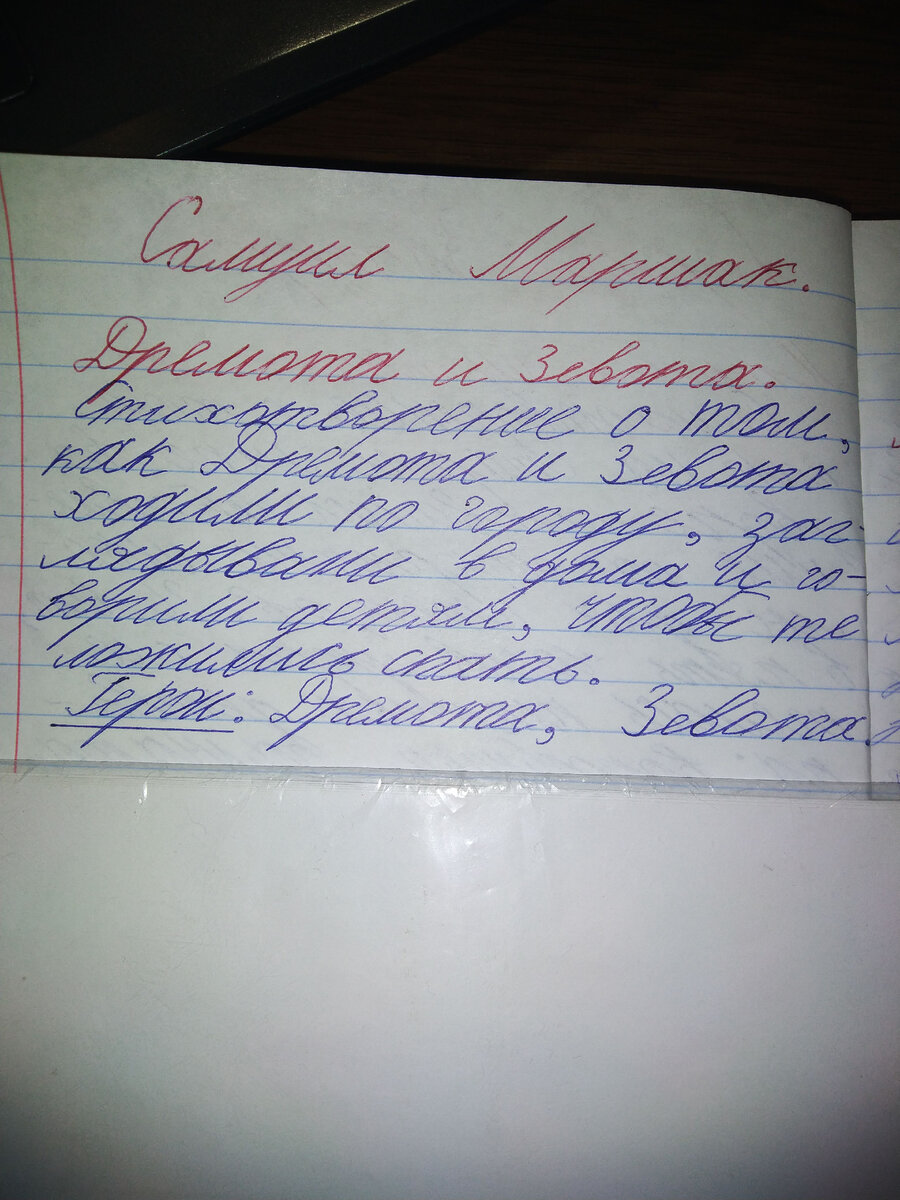 Самуил Маршак.
Дремота и Зевота.
Стихотворение о том,
как Дремота и Зевота
ходили по городу, заг-
лядывали в дома и го-
ворили детям, чтобы те
ложились спать.
Герои: Дремота, Зевота.